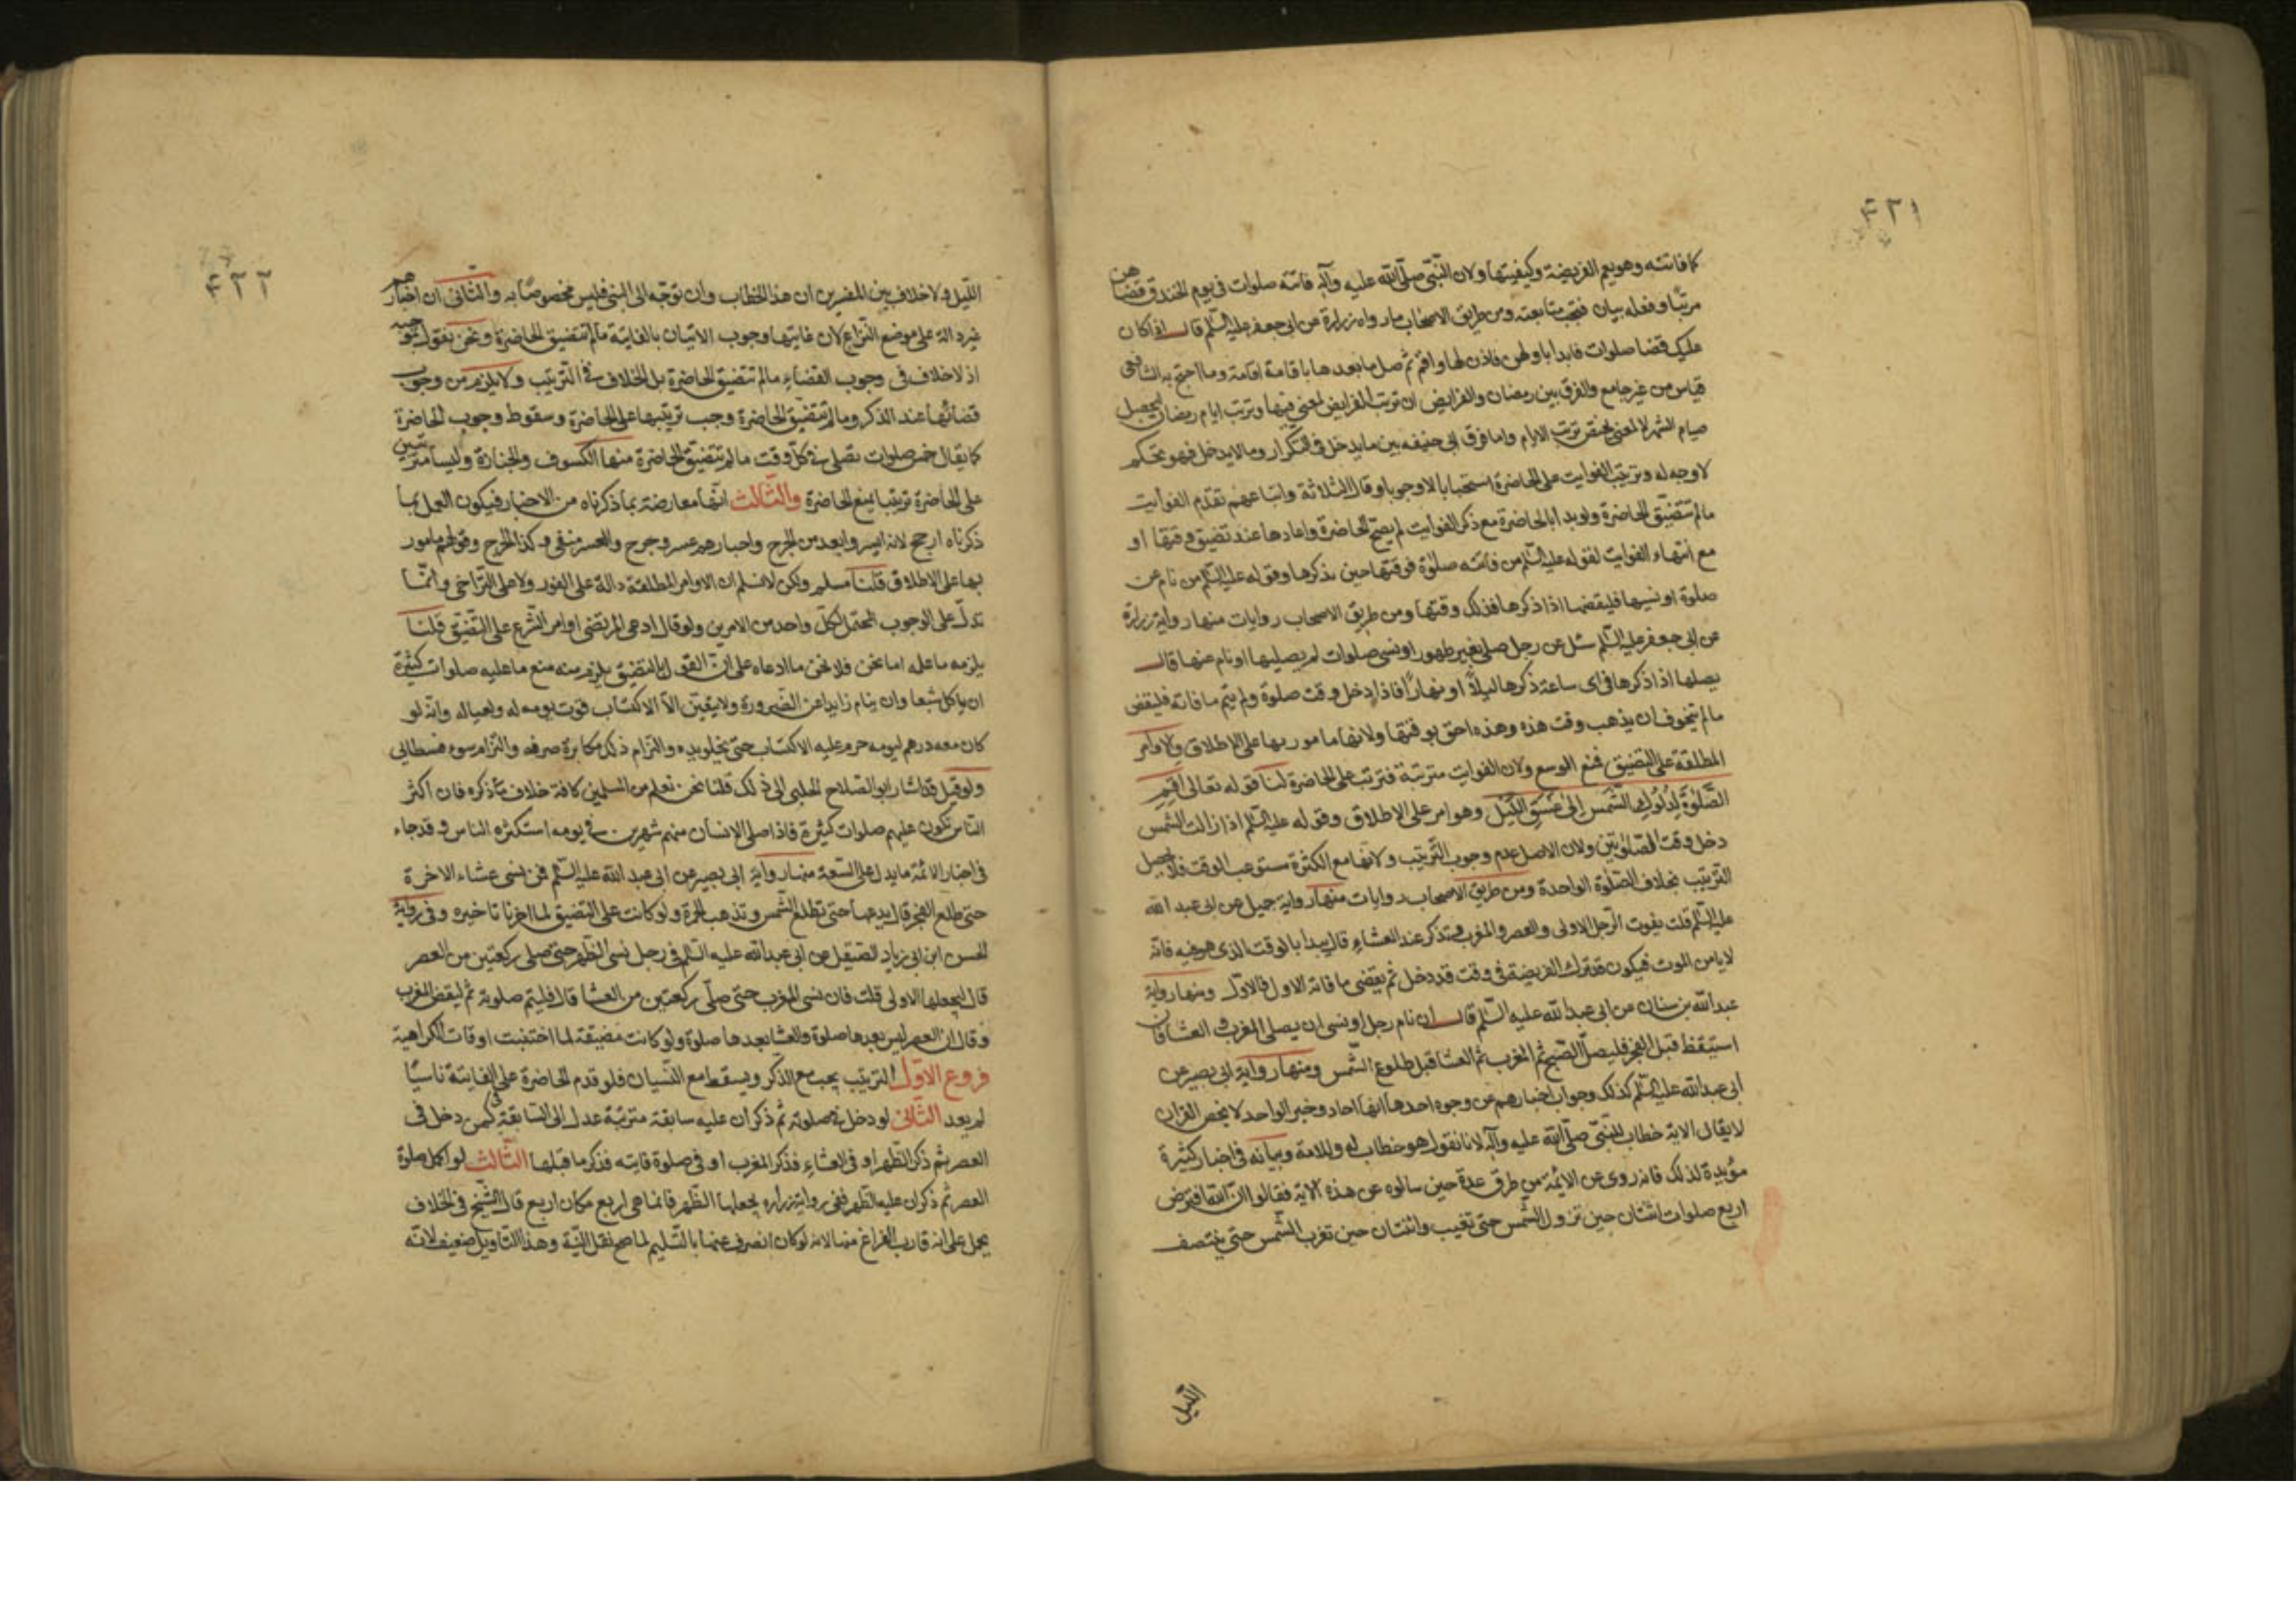 ٤٢١
كما فاتته وهو يعم الفريضة وكيفيتها ولان النّبى صلّى الله عليه وآله فاتته صلوات فى يوم الخندق فقضاهن
مرتبًا وفعله بيان فتجب متابعته ومن طريق الاصحاب مارواه زرارة عن ابى جعفر عليه السّلم قال اذا كان
عليك قضا صلوات فابدا باولهن فاذن لها واقم ثم صل مابعدها باقامة اقامة وما احتج به الشافعى
قياس من غير جامع والفرق بين رمضان والفرايض ان ترتب الفرايض لمعنى فيها وترتب ايام رمضان ليحصل
صيام الشهر لا لمعنى يختص ترتب الايام واما فرق ابى حنيفه بين مايدخل فى التكرار وما لا يدخل فهو تحكم
لا وجه له وترتيب الفوايت على الحاضرة استحبابا لا وجوبا وقال الثلاثة واتباعهم تقدّم الفوايت
مالم تتضيّق الحاضرة ولو بدا بالحاضرة مع ذكر الفوايت لم يصح الحاضرة واعادها عند تضيق وقتها او
مع انتهاء الفوايت لقوله عليه السّلم من فاتته صلوة فوقتها حين يذكرها وقوله عليه السّلم من نام عن
صلوة او نسيها فليقضها اذا ذكرها فذلك وقتها ومن طريق الاصحاب روايات منها رواية زرارة
عن ابى جعفر عليه السّلم سئل عن رجل صلى بغير طهور او نسى صلوات لم يصليها او نام عنها قال
يصلها اذا ذكرها فى اى ساعة ذكرها ليلاً او نهارًا فاذا دخل وقت صلوة ولم يتم ما فاته فليقض
مالم يتخوف ان يذهب وقت هذه وهذه احق بوقتها ولانها مامور بها على الاطلاق والاوامر
المطلقة على التضيق فنع الوسع ولان الفوايت مترتبة فترتب على الحاضرة لنا قوله تعالى اقم
الصَّلوٰةَ لِدُلُوكِ الشَّمس اِلىٰ غَسَقِ اللَّيل وهو امر على الاطلاق وقوله عليه السّلم اذا زالت الشّمس
دخل وقت الصّلوتين ولان الاصل عدم وجوب التّرتيب ولانها مع الكثرة تستوعب الوقت فلا يحصل
التّرتيب بخلاف الصّلوة الواحدة ومن طريق الاصحاب روايات منها رواية جميل عن ابى عبد الله
عليه السّلم قلت يفوت الرّجل الاولى والعصر والمغرب وتذكر عند العشاء قال يبدا بالوقت الذى هو فيه فانه
لا يامن الموت فيكون قد ترك الفريضة فى وقت قد دخل ثم يقضى ما فاته الاول فالاول ومنها رواية
عبد الله بن سنان عن ابى عبد الله عليه السّلم قال ان نام رجل او نسى ان يصلى المغرب والعشا فان
استيقظ قبل الفجر فليصلّ الصّبح ثم المغرب ثم العشا قبل طلوع الشّمس ومنها رواية ابى بصير عن
ابى عبد الله عليه السّلم كذلك وجواب اخبارهم من وجوه احدها انها احاد وخبر الواحد لا يخص القران
لا يقال الاية خطاب للنبّى صلّى الله عليه وآله لانا نقول هو خطاب له وللامة وبيانه فى اخبار كثيرة
مؤيدة لذلك فانه روى عن الايمّة من طرق عدة حين سالوه عن هذه الاية فقالوا انّ الله افترض
اربع صلوات اثنتان حين تزول الشّمس حتى تغيب واثنتان حين تغرب الشّمس حتى ينتصف
الّليل
٤٢٢
اللّيل ولا خلاف بين المفسرين ان هذا الخطاب وان توجّه الى النبى فليس مخصوصًا به والثّانى ان اخبارهم
غير دالة على موضع النّزاع لان غايتها وجوب الاتيان بالفايتة مالم تتضيق الحاضرة ونحن نقول بموجبه
اذ لا خلاف فى وجوب القضاء مالم تتضيق الحاضرة بل الخلاف فى التّرتيب ولا يلزم من وجوب
قضائها عند الذكر ومالم تتضيق الحاضرة وجب ترتيبها على الحاضرة وسقوط وجوب الحاضرة
كما يقال خمس صلوات تصلى فى كلّ وقت مالم تتضيق الحاضرة منها الكسوف والجنازة وليسا مترتبين
على الحاضرة ترتيبا يمنع الحاضرة والثّالث انّها معارضة بما ذكرناه من الاخبار فيكون العمل بما
ذكرناه ارجح لانه ايسر وابعد من الحرج واخبارهم عسر وحرج والعسر منفى وكذا الحرج وقولهم مامور
بها على الاطلاق قلنا مسلم ولكن لا نسلم ان الاوامر المطلقة دالة على الفور ولا على التّراخى وانّما
تدلّ على الوجوب المحتمل لكلّ واحد من الامرين ولو قال ادعى المرتضى اوامر الشّرع على التّضيّق قلنا
يلزمه ما علم اما نحن فلا نحن ما ادعاه على ان القول بالتضيق يلزم منه منع ما عليه صلوات كثيرة
ان ياكل شبعا وان ينام زايدا عن الضّرورة ولا يقين الّا لاكتساب قوت يومه له ولعياله وانّه لو
كان معه درهم ليومه حرم عليه الاكتساب حتى يخلو يده والتزام ذلك مكابرة صرفه والتزام سوء فسطائى
ولو قيل قد اشار ابو الصّلاح الحلبى الى ذلك قلنا نحن نعلم من المسلمين كافة خلاف ما ذكره فان اكثر
النّاس تكون عليهم صلوات كثيرة فاذا صلى الانسان منهم شهرين فى يومه استكثره الناس وقد جاء
فى اخبار الائمّة مايدل على السّعة منها رواية ابى بصير عن ابى عبد الله عليه السّلم فمن نسى عشاء الاخرة
حتى طلع الفجر قال يدعها حتى تطلع الشّمس وتذهب الحمرة ولو كانت على التضيق لما اخرنا تاخيره وفى رواية
الحسن ابن ابى زياد الصّيقل عن ابى عبد الله عليه السّلم فى رجل نسى الظّهر حتى صلى ركعتين من العصر
قال ليجعلها الاولى قلت فان نسى المغرب حتى صلّى ركعتين من العشا قال فليتم صلوته ثم ليقض المغرب
وقال ان العصر ليس بعدها صلوة والعشا بعدها صلوة ولو كانت مضيقة لما اختفيت اوقات الكراهية
فروع الاوّل التّرتيب يجب مع الذّكر ويسقط مع النّسيان فلو قدم الحاضرة على الفايتة ناسيًا
لم يعد الثّانى لو دخل فى صلوته ثم ذكر ان عليه سابقة مترتبة عدل الى السّابقة كمن دخل فى
العصر ثم ذكر الظّهر او فى العشاء فذكر المغرب او فى صلوة فايته فذكر ما قبلها الثّالث لو اكمل صلوة
العصر ثم ذكر ان عليه الظهر ففى رواية زراره يجعلها الظّهر فانما هى اربع مكان اربع قال الشّيخ فى الخلاف
يحمل على انه قارب الفراغ منها لانه لو كان انصرف عنها بالتّسليم لما صح نقل النيّة وهذا التّاويل ضعيف لانّه